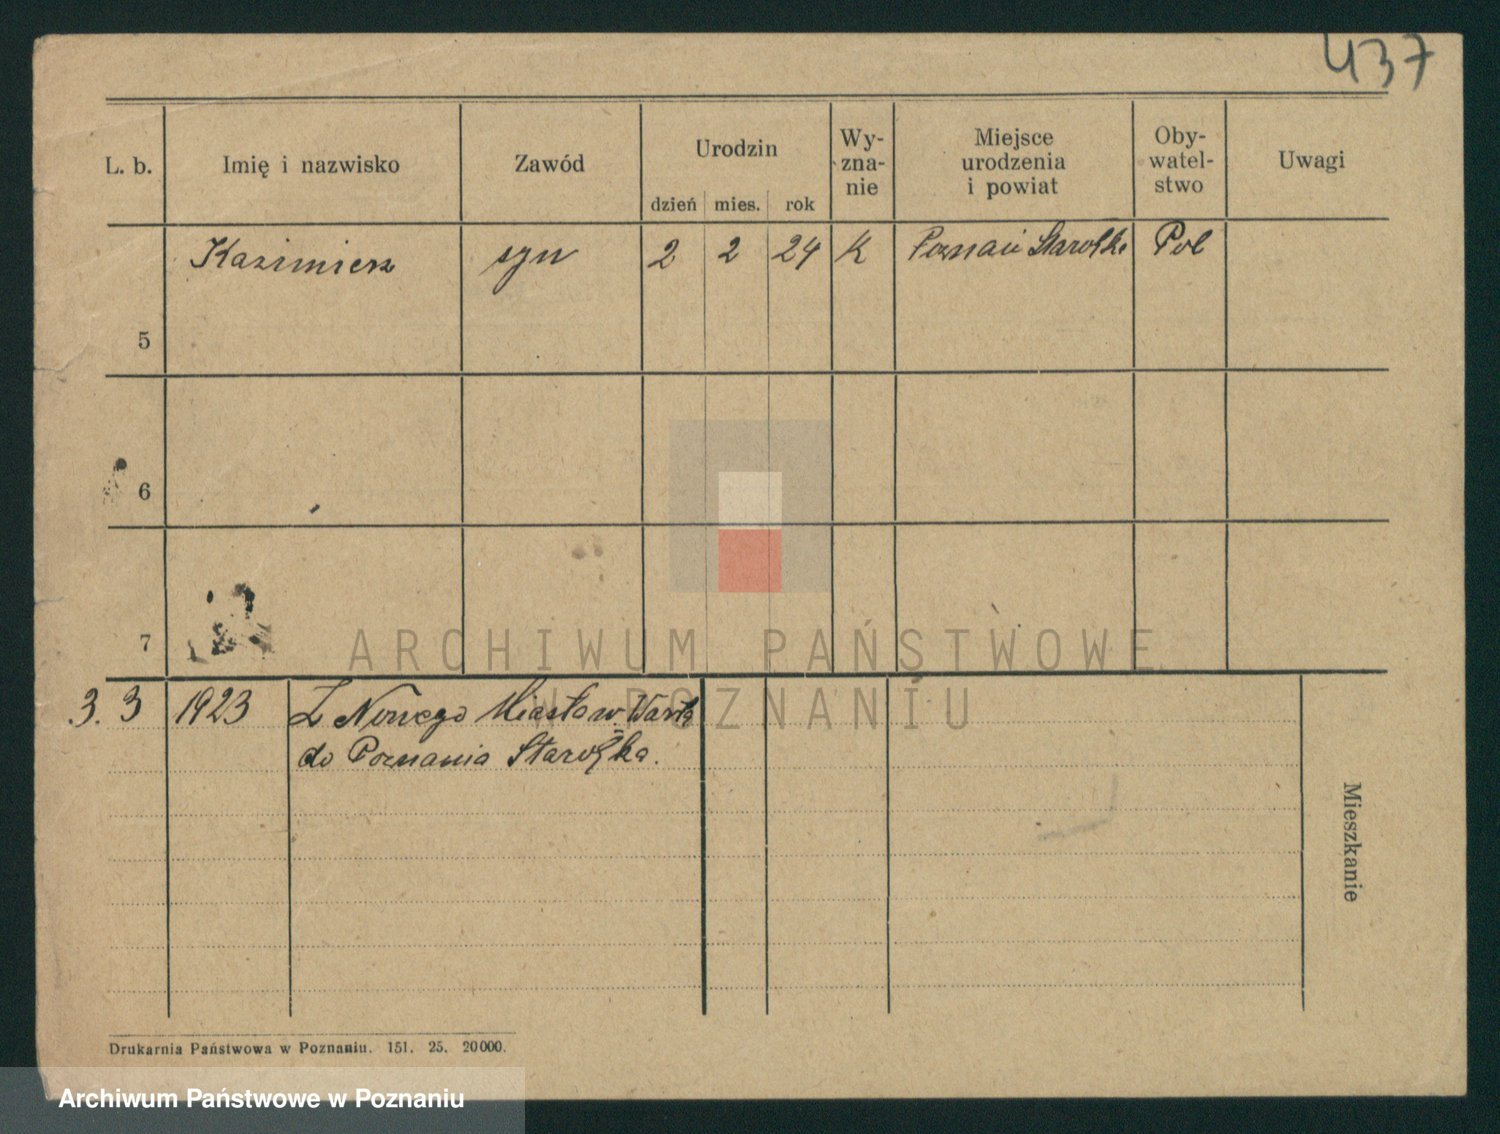 437
L. b. Imię i nazwisko Zawód Urodzin dzień mies. rok Wy-zna-nie Miejsce urodzenia i powiat Oby-watel-stwo Uwagi
5 Kazimierz syn 2 2 24 K Poznań Starołęka Pol
6
7
3. 3 1923 Z Nowego Miasta w. Wartą
do Poznania Starołęka.
Mieszkanie
Drukarnia Państwowa w Poznaniu. 151. 25. 20 000.
ARCHIWUM PAŃSTWOWE
W POZNANIU
Archiwum Państwowe w Poznaniu